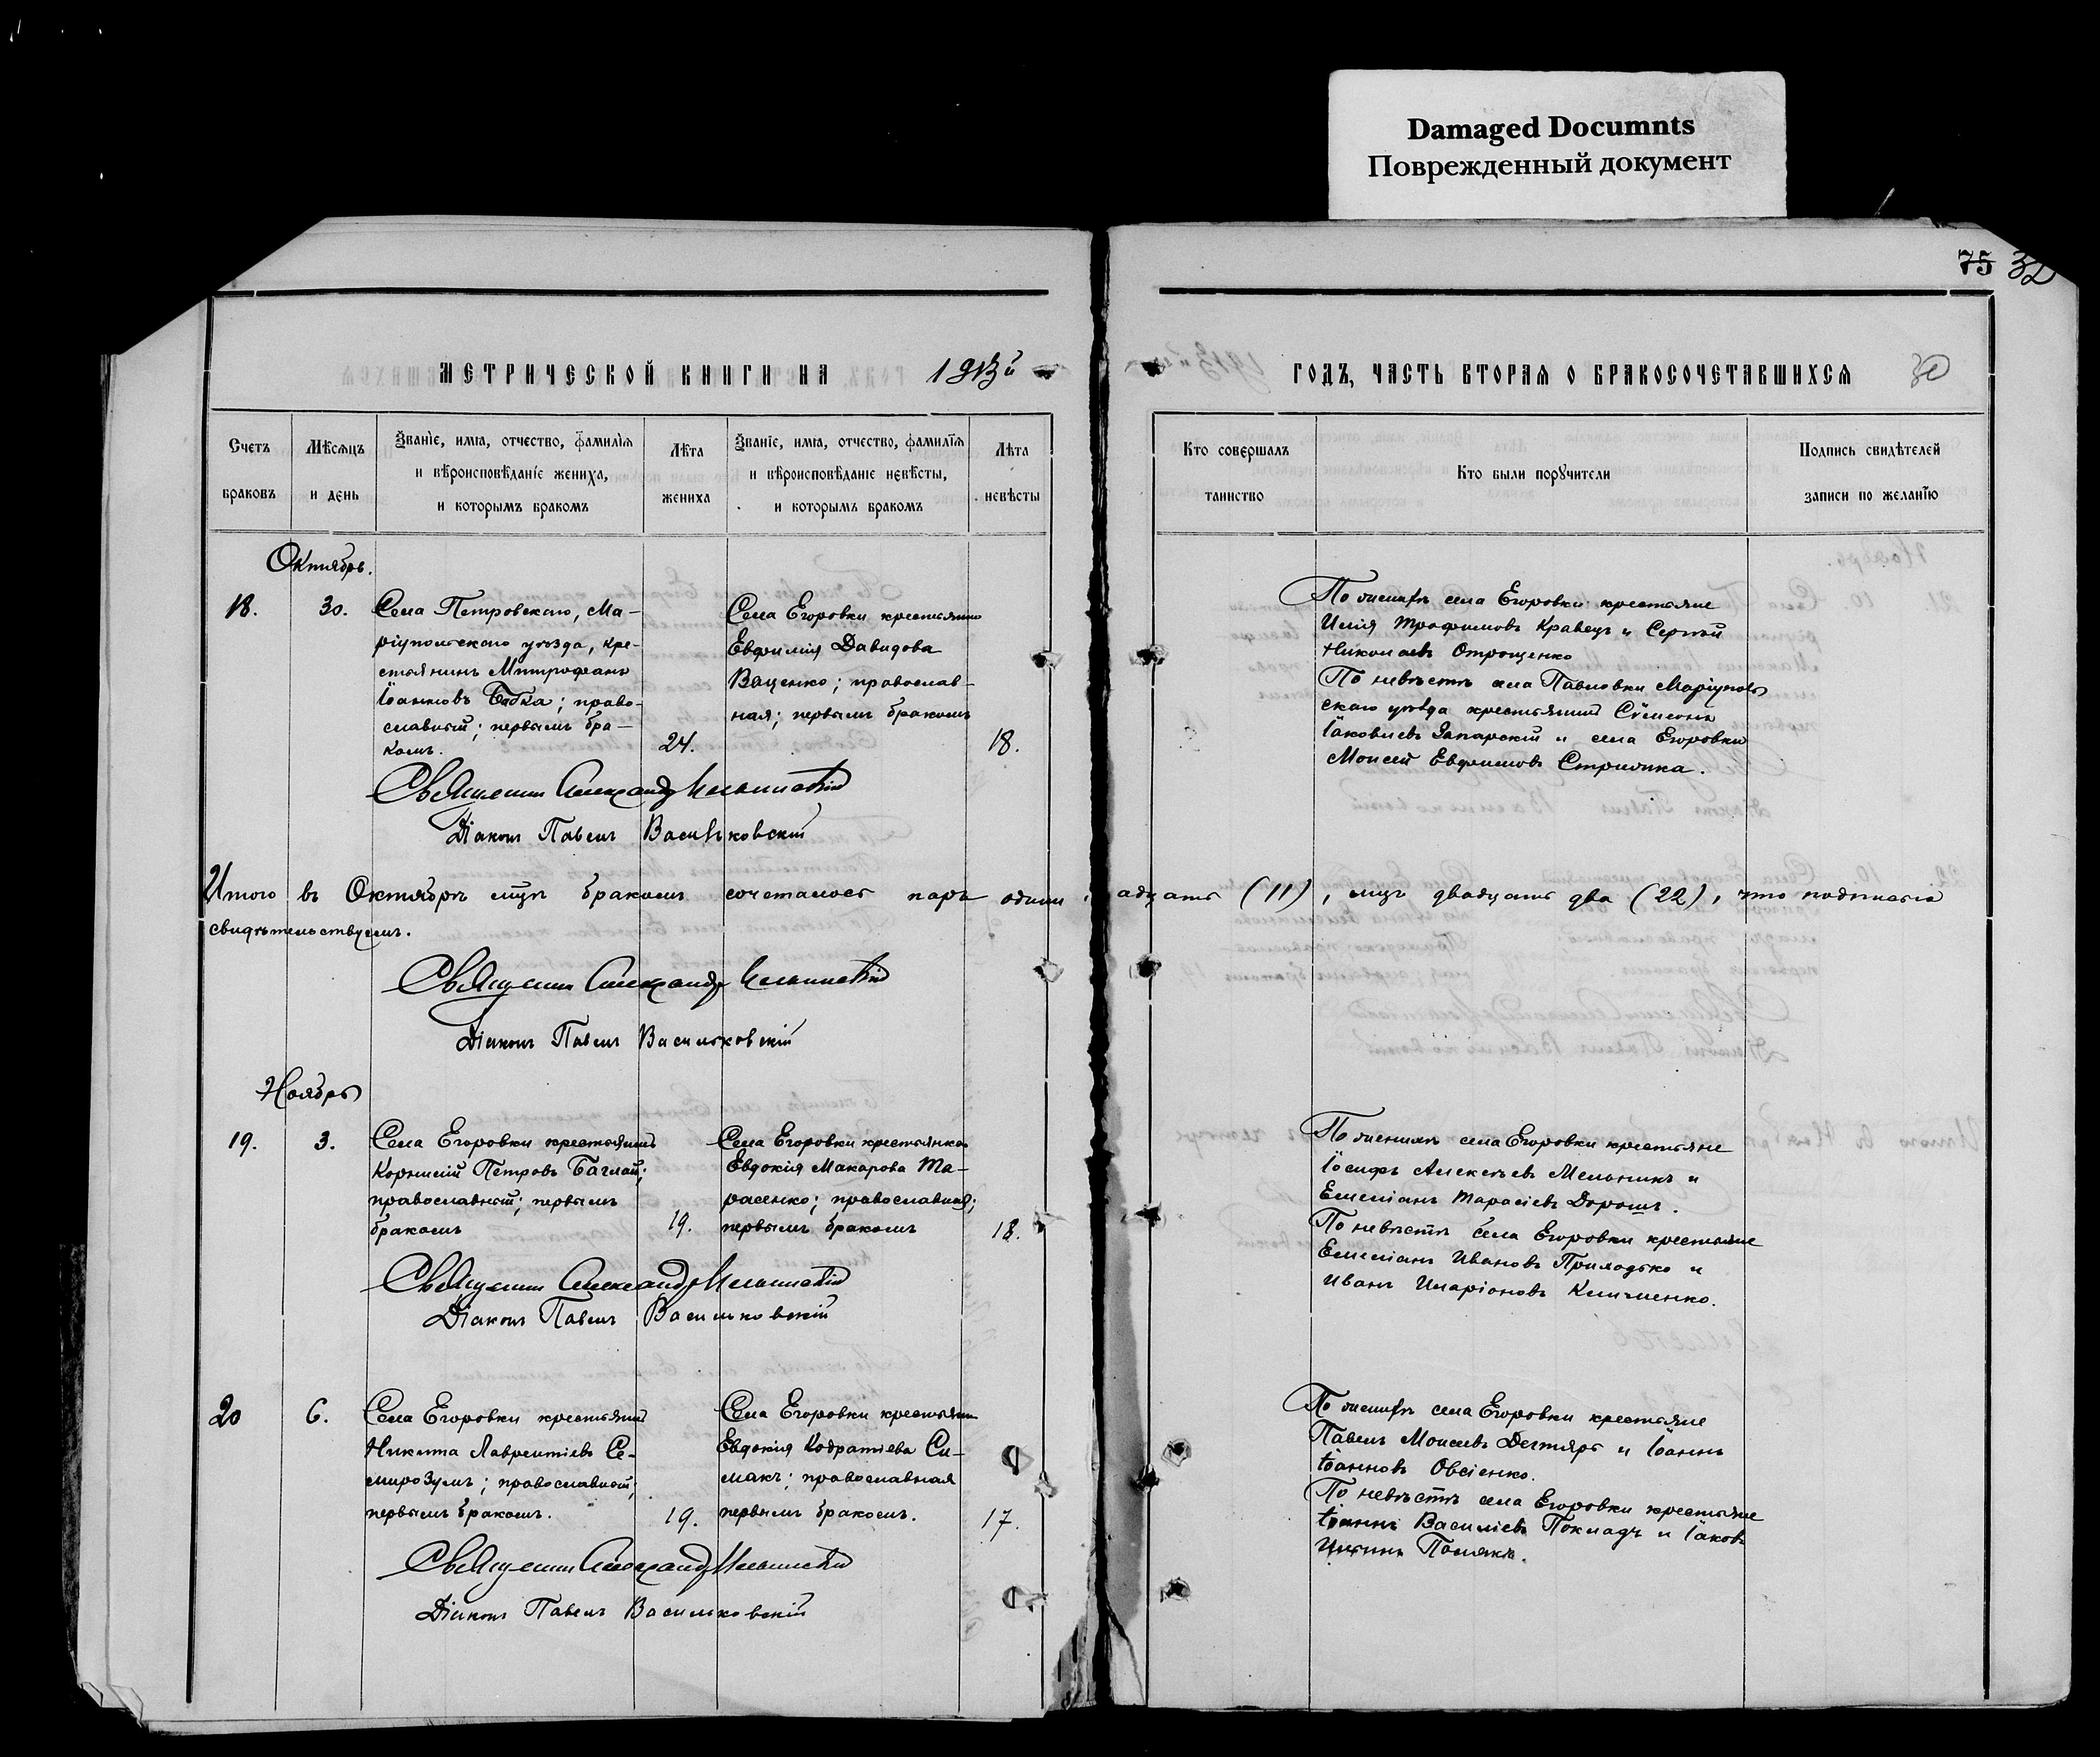 Damaged Documnts
Поврежденный документ
75 32
МЕТРИЧЕСКОЙ КНИГИ НА 1913й
ГОДЪ, ЧАСТЬ ВТОРАЯ О БРАКОСОЧЕТАВШИХСЯ 30
Счетъ браковъ
Мѣсяцъ и день
Званіе, имя, отчество, фамилія
и вѣроисповѣданіе жениха,
и которымъ бракомъ
Лѣта жениха
Званіе, имя, отчество, фамилія
и вѣроисповѣданіе невѣсты,
и которымъ бракомъ
Лѣта невѣсты
Кто совершалъ таинство
Кто были поручители
Подпись свидѣтелей
записи по желанію
Октябрь.
18. 30.
Села Петровскаго, Ма-
ріупольскаго уѣзда, кре-
стьянинъ Митрофанъ
Іоанновъ Бабка; право-
славный; первымъ бра-
комъ.
24.
Села Егоровки крестьянка
Евфимія Давидова
Ваценко; православ-
ная; первымъ бракомъ
18.
По женихѣ села Егоровки крестьяне
Илія Трофимовъ Кравецъ и Сергѣй
Николаевъ Отрощенко
По невѣстѣ села Павловки Маріуполь
скаго уѣзда крестьянинъ Сѵмеонъ
Іаковлевъ Запарскій и села Егоровки
Моисей Евфимовъ Стрилика.
Священникъ Александръ
Діаконъ Павелъ Васильковскій
Итого въ Октябрѣ мцѣ бракомъ сочеталось паръ одинн адцать (11), лицъ двадцать два (22), что подписью
свидѣтельствуемъ.
Священникъ Александръ
Діаконъ Павелъ Васильковскій
Ноябрь
19. 3.
Села Егоровки крестьянинъ
Корнилій Петровъ Баглай;
православный; первымъ
бракомъ
19.
Села Егоровки крестьянка
Евдокія Макарова Та-
расенко; православная;
первымъ бракомъ
18.
По женихѣ села Егоровки крестьяне
Іосифъ Алексѣевъ Мельникъ и
Емеліанъ Тарасіевъ Дорошъ.
По невѣстѣ села Егоровки крестьяне
Емеліанъ Ивановъ Приходько и
Иванъ Иларіоновъ Клименко.
Священникъ Александръ
Діаконъ Павелъ Васильковскій
20 6.
Села Егоровки крестьянинъ
Никита Лаврентіевъ Се-
мирозумъ; православный;
первымъ бракомъ.
19.
Села Егоровки крестьянка
Евдокія Кодратіева Си-
макъ; православная
первымъ бракомъ.
17.
По женихѣ села Егоровки крестьяне
Павелъ Моисеевъ Дегтярь и Іоаннъ
Іоанновъ Овсіенко.
По невѣстѣ села Егоровки крестьяне
Іоаннъ Василіевъ Покладъ и Іаковъ
Полякъ.
Священникъ Александръ
Діаконъ Павелъ Васильковскій